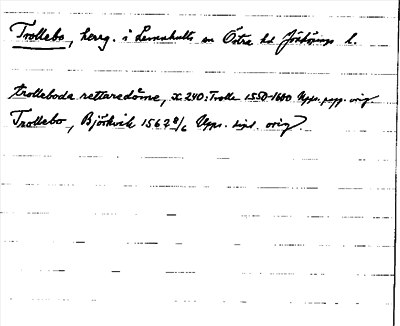 Trollebo, herrg. i Lemnhults sn Östra hd Jönköpings l.
trolleboda rettaredöme, X 240: Trolle 1550-1600 Upps. papp. orig.
Trollebo, Björkvik 1562 8/6 Upps. sigil. orig.